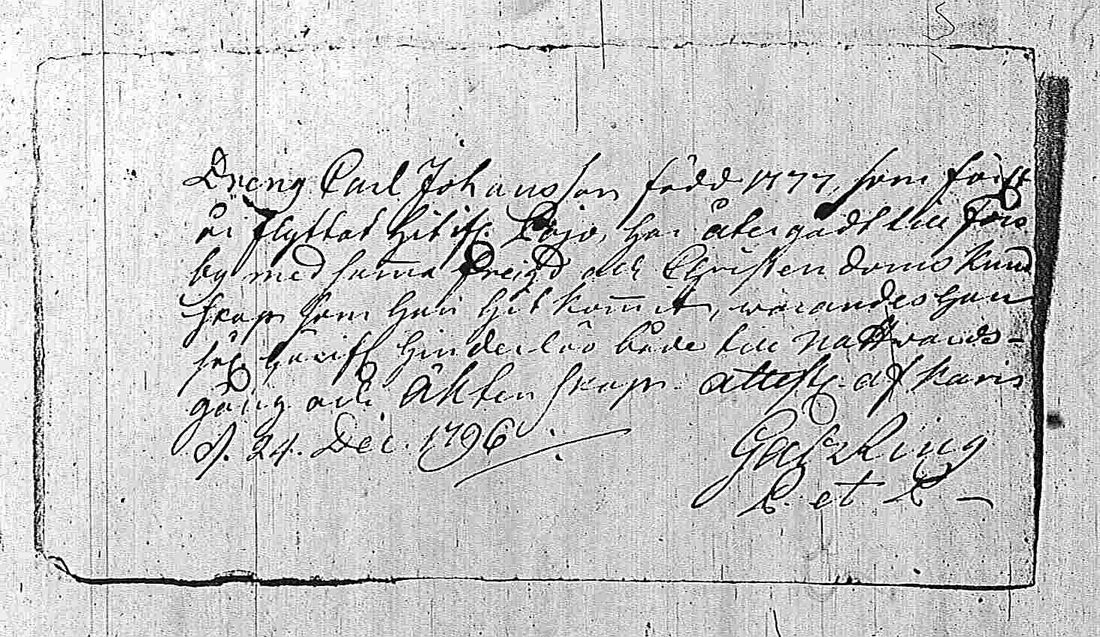 Dreng Carl Johansson född 1777, som förstt
år flyttat hit ifr. Pojo, har återgådt till Förs
by med samma Freigd och Christendoms kund
skap som han hit kommit, warandes han
hinderlös både till Nattwards-
gång och Ächtenskap. attest. af Karis
d. 24. Dec. 1796.
Ring
P. et P.